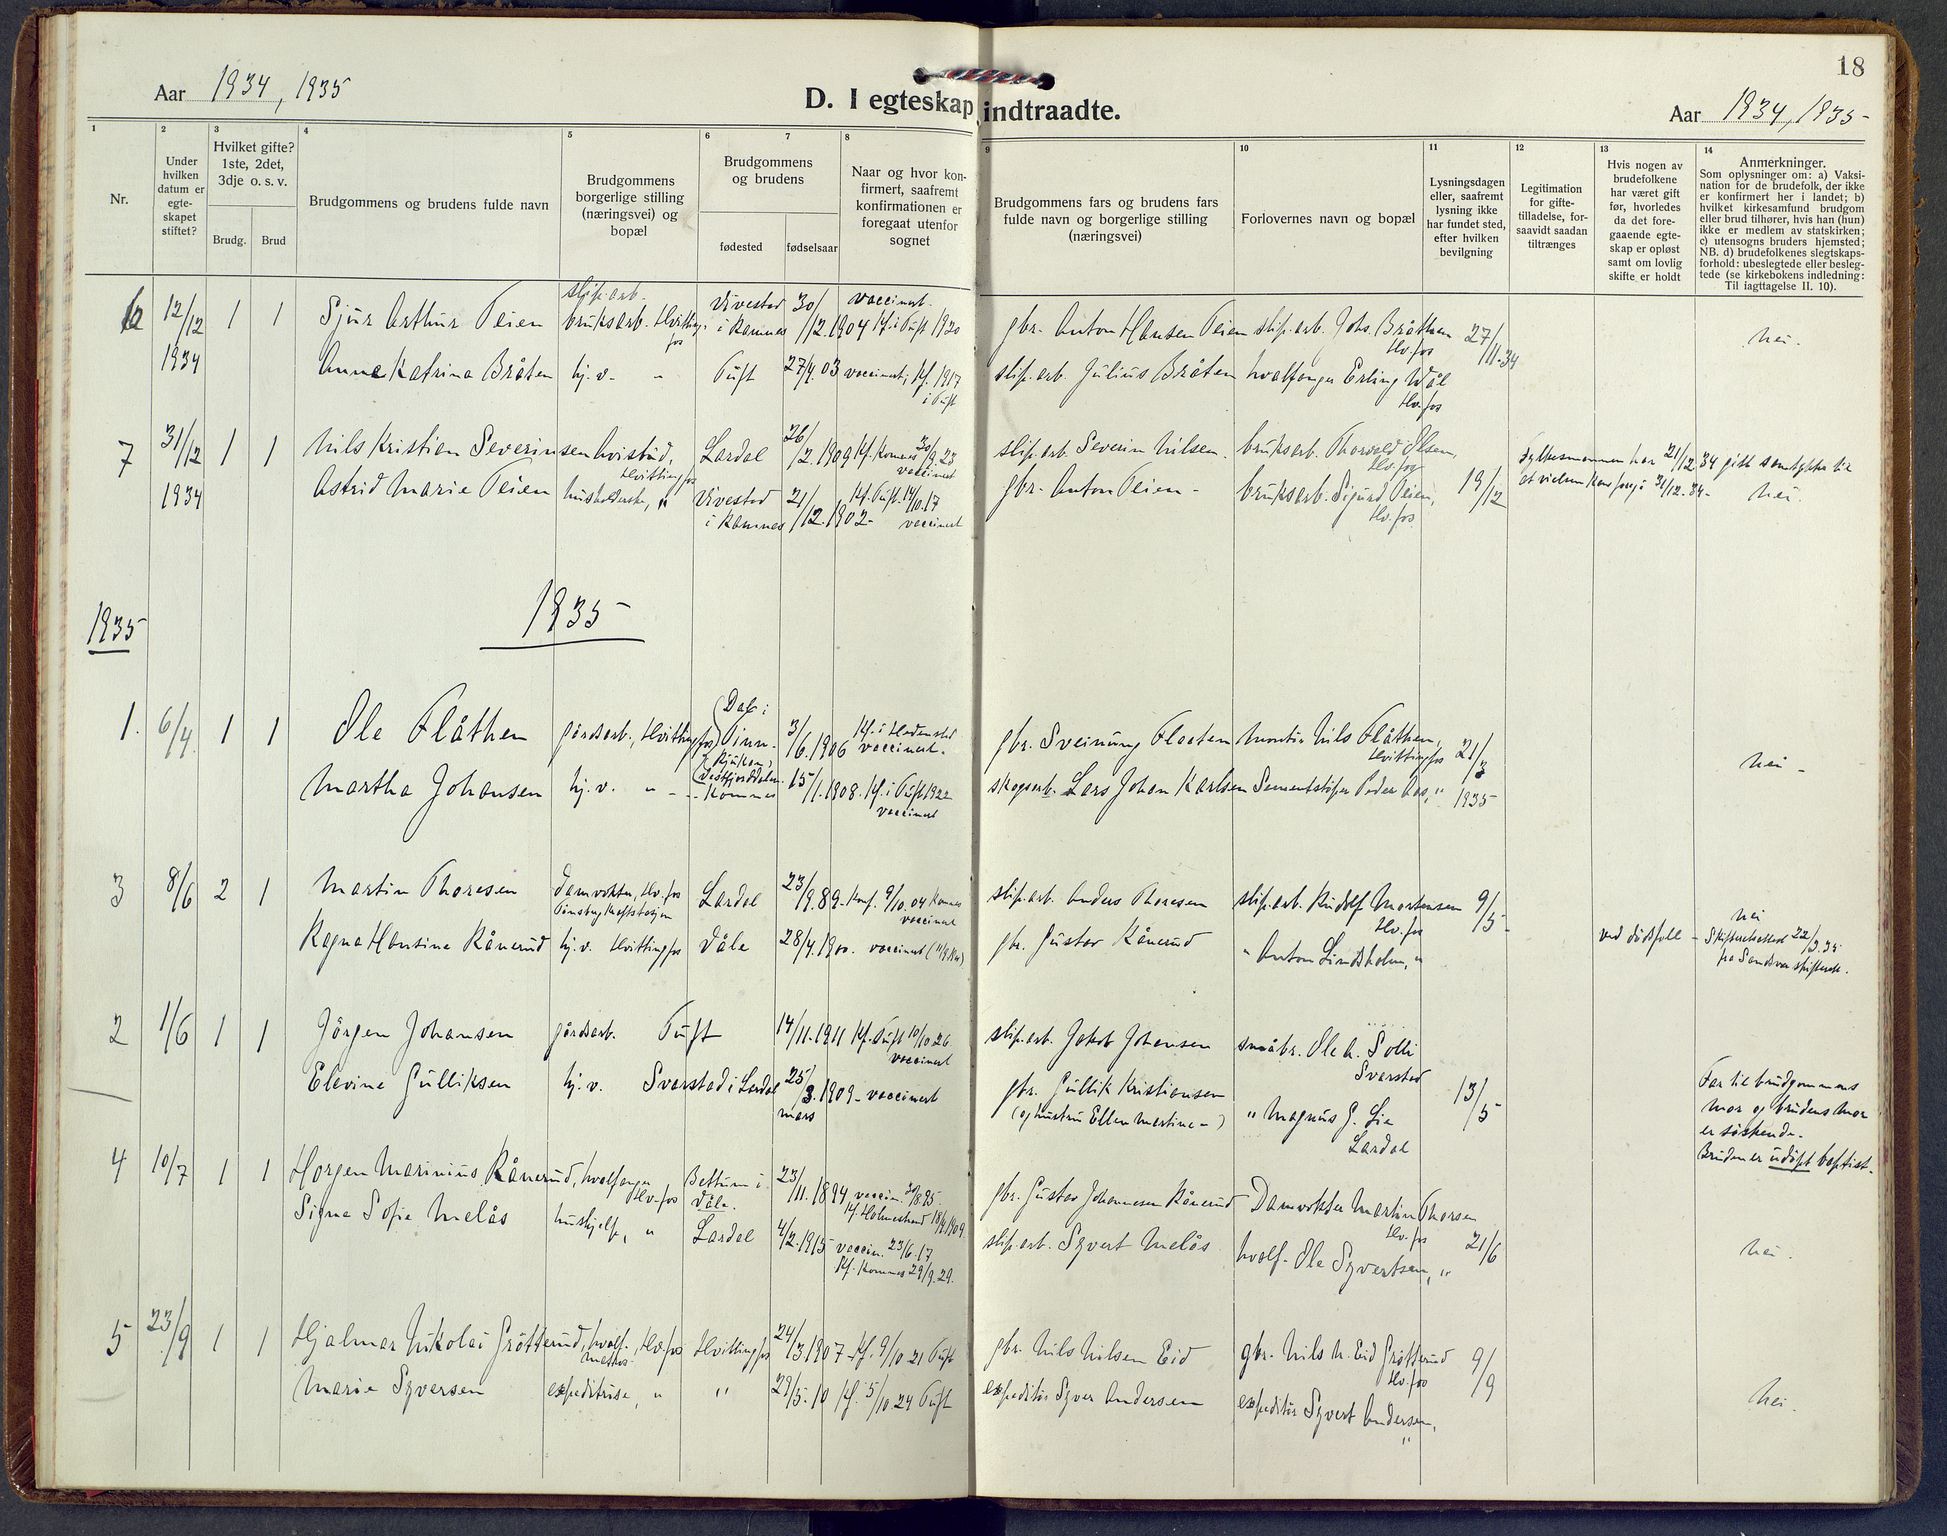 18
Aar 1934, 1935
D. I egteskap indtraadte.
Aar 1934, 1935
1
2
3
4
5
6
7
8
9
10
11
12
13
14
Nr.
Under hvilken datum er egteskapet stiftet?
Hvilket gifte? 1ste, 2det, 3dje o. s. v.
Brudg.
Brud
Brudgommens og brudens fulde navn
Brudgommens borgerlige stilling (næringsvei) og bopæl
Brudgommens og brudens
fødested
fødselsaar
Naar og hvor konfirmert, saafremt konfirmationen er foregaat utenfor sognet
Brudgommens fars og brudens fars fulde navn og borgerlige stilling (næringsvei)
Forlovernes navn og bopæl
Lysningsdagen eller, saafremt lysning ikke har fundet sted, efter hvilken bevilgning
Legitimation for giftetilladelse, forsaavidt saadan tiltrænges
Hvis nogen av brudefolkene har været gift før, hvorledes da det foregaaende egteskap er opløst samt om lovlig skifte er holdt
Anmerkninger.
Som oplysninger om: a) Vaksination for de brudefolk, der ikke er konfirmert her i landet; b) hvilket kirkesamfund brudgom eller brud tilhører, hvis han (hun) ikke er medlem av statskirken; c) utensogns bruders hjemsted; NB. d) brudefolkenes slegtskapsforhold: ubeslegtede eller beslegtede (se kirkebokens indledning: Til iagttagelse II. 10).
6 12/12 1934 1 1 Sjur Arthur Teien slip.arb. bruksarb. Hvittingfos Vivestad i Ramnes 30/12.1904 vaccinert. Kf. i Tuft 1920 gbr. Anton Hansen Teien slip.arb. Johs. Bråthen Hv.fos 27/11-34 nei.
Anna Katrina Bråten hj.v. " Tuft 27/4.03 vaccinert; Kf. 1917 i Tuft slip.arb. Julius Bråten hvalfanger Erling Wål Hv.fos
7 31/12 1934 1 1 Nils Kristian Severinsen Hvistad, Hvittingfos Lardal 26/2.1909 Kf. Komnes 30/9.23 vaccinert slip.arb. Severin Nilsen. bruksarb. Thorvald Olsen, Hv.fos 19/12 Fylkesmannen har 21/12.34 gitt samtykke til at vielsen kan foregå 31/12.34.
Astrid Marie Teien husholderske, " Vivestad i Ramnes 21/12.1902- Kf. Tuft 14/10.17 vaccinert gbr. Anton Teien - bruksarb. Sigurd Teien, Hv.fos. nei.
1935
1935
1. 6/4 1 1 Ole Flåthen gårdsarb., Hvittingfos (Dal i Tinn- Rjukan, Vestfjorddalen 3/6.1906 Kf. i Hedenstad vaccinert. gbr. Sveinung Flaaten montør Nils Flåthen, Hvittingfos 21/3 1935 nei -
Martha Johansen hj.v. " - Komnes 15/1.1908. Kf. i Tuft 1922 vaccinert skogsarb. Lars Johan Karlsen Sementstøper Peder Aas, "
3 8/6 2 1 Martin Thoresen Damvokter, Hv.fos Lardal 23/9.89 - Konf. 9/10.04 Komnes vaccinert slip.arb. Anders Thoresen slip.arb. Rudolf Mortensen Hv.fos 9/5- ved dødsfall - nei
Ragna Hansine Rånerud hj.v. Hvittingfos Våle 28/4.1900. vaccinert gbr. Gustav Rånerud " Anton Lindsholm, " Skifteretsattest 22/3.35 fra Sandsvær skifterett.
2 1/6 1 1 Jörgen Johansen gårdsarb. Tuft 14/11.1911 Kf. Tuft 10/10.26 vaccinert slip.arb. Jakob Johansen småbr. Ole A. Solli Svarstad 13/5
Elevine Gulliksen hj.v. Svarstad i Lardal 25/3.1909 - mars vaccinert gbr. Gullik Kristiansen (og hustru Ellen Martine -) " Magnus G. Lia Lardal
Far til brudgommens mor og brudens mor er söskende.
Bruden er udöpt baptist.
4 10/7 1 1 Horgen Marinius Rånerud, hvalfanger Hv.fos Bettum i Våle. 23/11.1894 vaccin. 30/8.95 Kf. Holmestrand gbr. Gustav Johannesen Rånerud Damvokter Martin Thorsen Hv.fos 21/6
Signe Sofie Melås hushjelp, " Lardal 4/2.1915 vaccin. 23/6.17. Kf. Komnes 29/9.29. slip.arb. Syvert Melås. hvalf. Ole Syvertsen, " nei.
5 23/9 1 1 Hjalmar Nikolai Gröterud, hvalf. matros, Hv.fos Hvittingfos 24/3.1907 - Kf. 9/10 21 Tuft gbr. Nils Nilsen Eid gbr. Nils N. Eid Gröterud Hv.fos 9/9
Marie Syversen expeditrise, " " 29/5.10 Kf. 5/10 24 Tuft expeditör Syver Andersen expeditör Syvert Andersen, " nei.